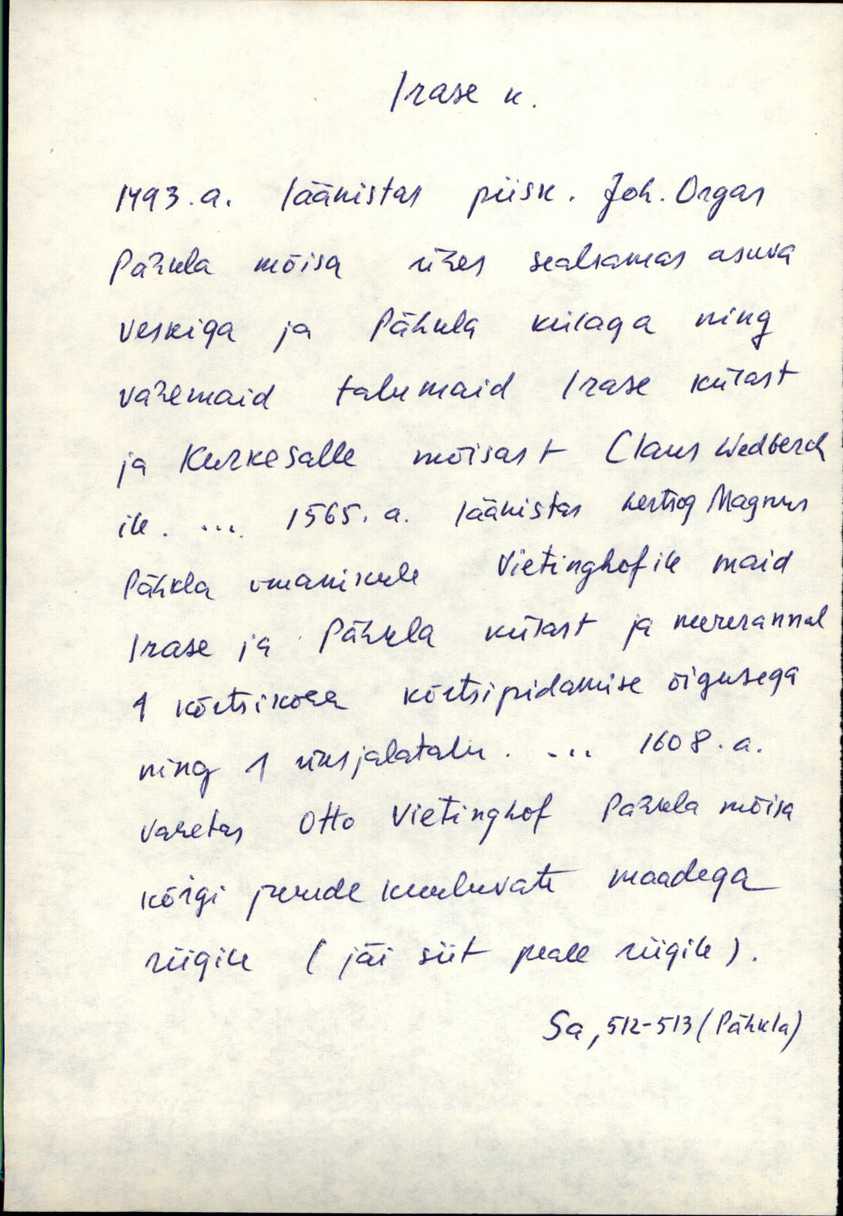 Irase k.
1493.a. läänistas piisk. Joh. Orgas
Pähkla mõisa ühes sealsamas asuva
veskiga ja Pähkla külaga ning
vähemaid talumaid Irase külast
ja Kurkesalle mõisast Claus Wedberch
ile. ... 1565. a. läänistas hertsog Magnus
Pähkla omanikule Vietinghofile maid
Irase ja Pähkla külast ja mererannal
1 kõrtsikoha kõrtsipidamise õigusega
ning 1 üksjalatalu. ... 1608. a.
vahetas Otto Vietinghof Pähkla mõisa
kõigi juurde kuuluvate maadega
riigile (jäi siit peale riigile).
Sa, 512-513 (Pähkla)